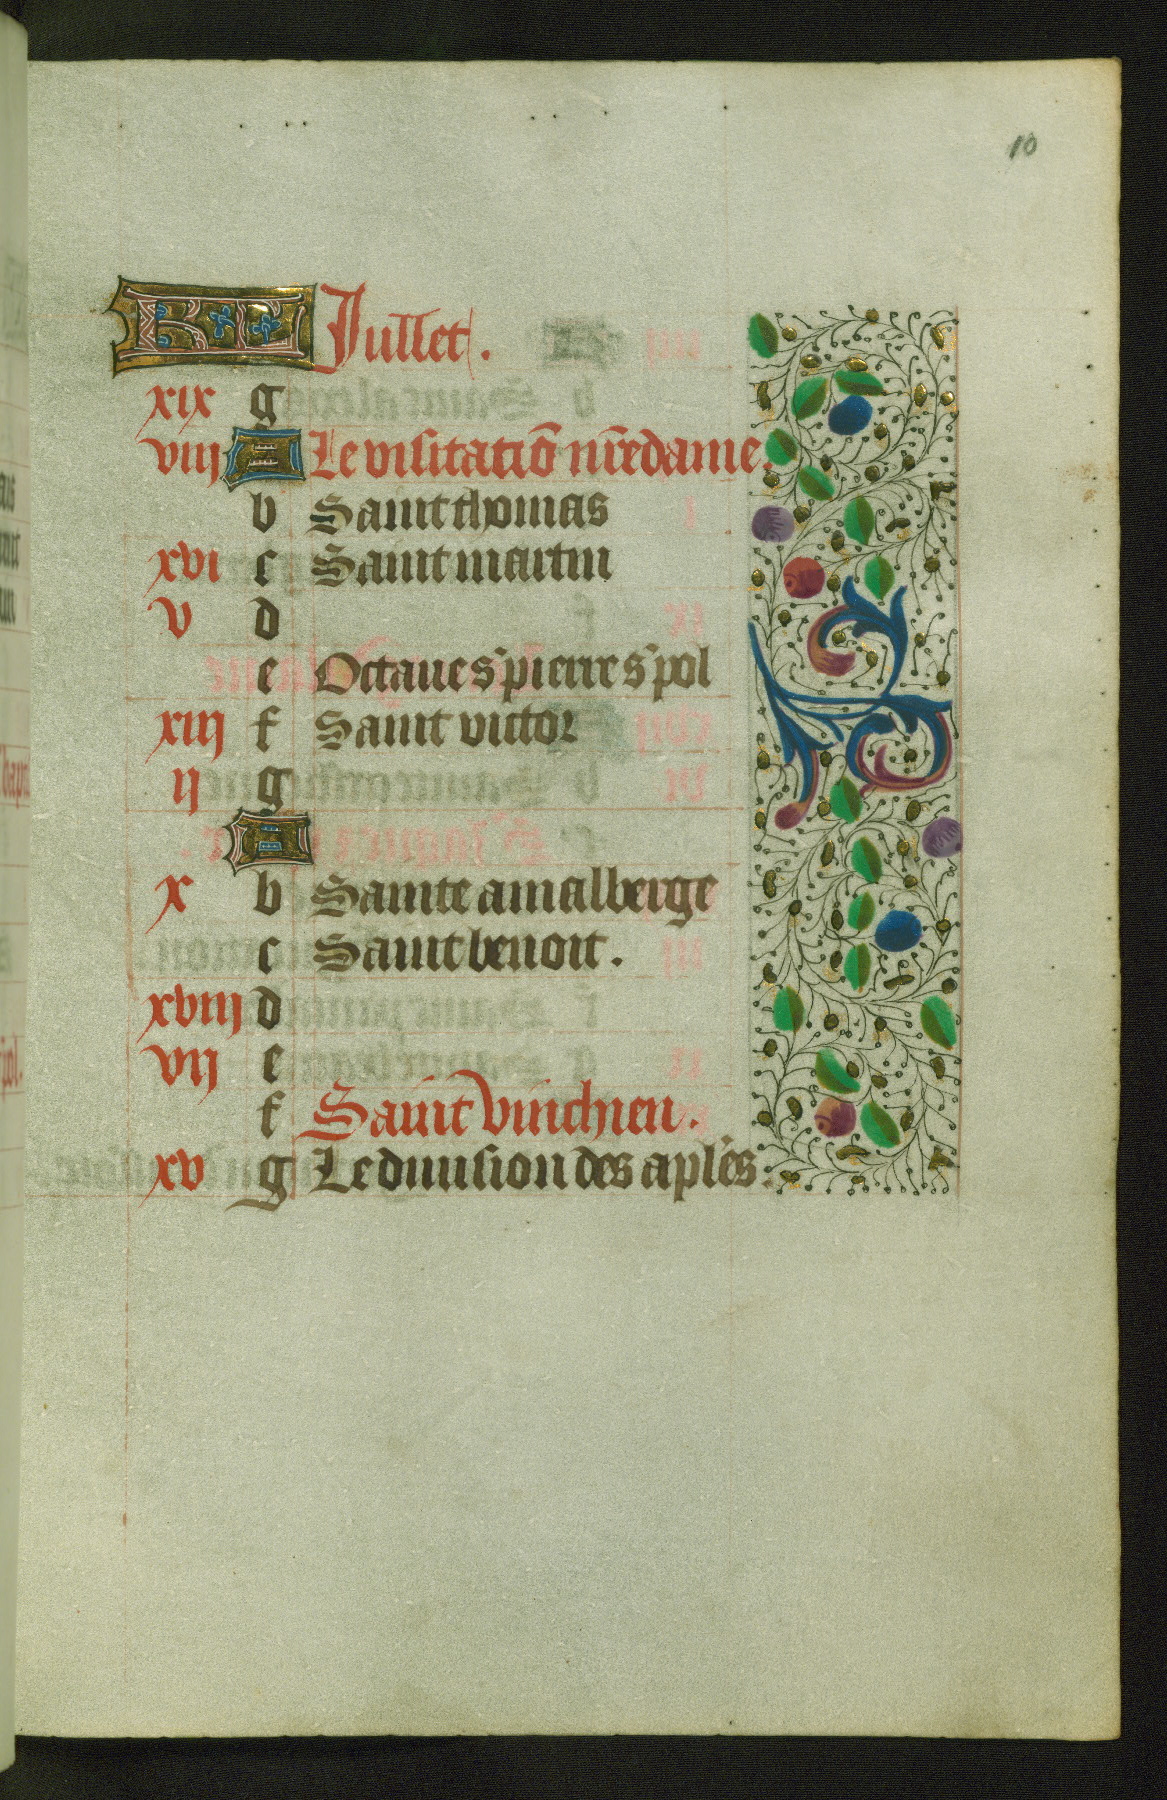 10
KL Jullet.
xix g
viij A Le visitatiō nr̄edame.
b Saint thomas
xvi c Saint martin
v d
e Octaue s' pierre s' pol
xiij f Saint victor
ij g
A
x b Sainte amalberge
c Saint benoit.
xviij d
vij e
f Saint vinchien.
xv g Le diuision des aplēs.